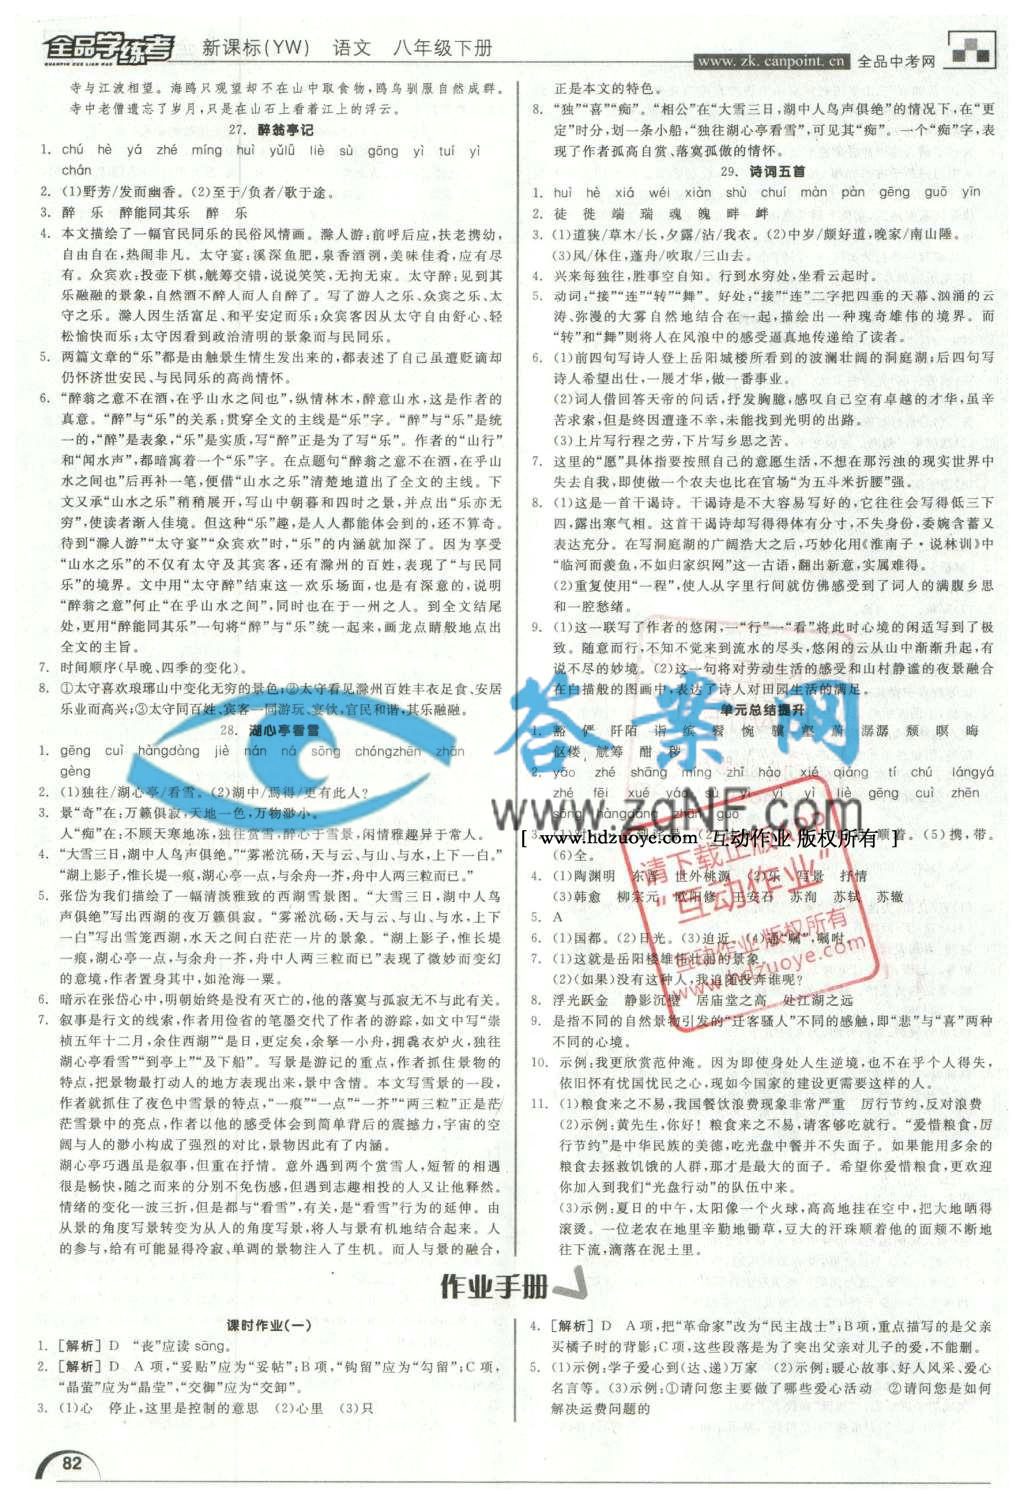 全品学练考 新课标(YW) 语文 八年级下册
www.zk.canpoint.cn 全品中考网
寺与江波相望。海鸥只观望却不在山中取食物,鸥鸟驯服自然成群。
寺中老僧遗忘了岁月,只是在山石上看着江上的浮云。
27. 醉翁亭记
1. chú hè yá zhé míng huì yǔlǚ liè sù gōng yì tuí yì
chán
2. (1)野芳/发而幽香。(2)至于/负者/歌于途。
3. 醉 乐 醉能同其乐 醉 乐
4. 本文描绘了一幅官民同乐的民俗风情画。滁人游:前呼后应,扶老携幼,
自由自在,热闹非凡。太守宴:溪深鱼肥,泉香酒洌,美味佳肴,应有尽
有。众宾欢:投壶下棋,觥筹交错,说说笑笑,无拘无束。太守醉:见到其
乐融融的景象,自然酒不醉人而人自醉了。写了游人之乐、众宾之乐、太
守之乐。滁人因生活富足、和平安定而乐;众宾客因从太守自由舒心、轻
松愉快而乐;太守因看到政治清明的景象而与民同乐。
5. 两篇文章的“乐”都是由触景生情生发出来的,都表述了自己虽遭贬谪却
仍怀济世安民、与民同乐的高尚情怀。
6. “醉翁之意不在酒,在乎山水之间也”,纵情林木,醉意山水,这是作者的
真意。“醉”与“乐”的关系:贯穿全文的主线是“乐”字。“醉”与“乐”是统
一的,“醉”是表象,“乐”是实质,写“醉”正是为了写“乐”。作者的“山行”
和“闻水声”,都暗寓着一个“乐”字。在点题句“醉翁之意不在酒,在乎山
水之间也”后再补一笔,便借“山水之乐”清楚地道出了全文的主线。下
文又承“山水之乐”稍稍展开,写山中朝暮和四时之景,并点出“乐亦无
穷”,使读者渐入佳境。但这种“乐”趣,是人人都能体会到的,还不算奇。
待到“滁人游”“太守宴”“众宾欢”时,“乐”的内涵就加深了。因为享受
“山水之乐”的不仅有太守及其宾客,还有滁州的百姓,表现了“与民同
乐”的境界。文中用“太守醉”结束这一欢乐场面,也是有深意的,说明
“醉翁之意”何止“在乎山水之间”,同时也在于一州之人。到全文结尾
处,更用“醉能同其乐”一句将“醉”与“乐”统一起来,画龙点睛般地点出
全文的主旨。
7. 时间顺序(早晚、四季的变化)。
8. ①太守喜欢琅琊山中变化无穷的景色;②太守看见滁州百姓丰衣足食、安居
乐业而高兴;③太守同百姓、宾客一同游玩、宴饮,官民和谐,其乐融融。
28. 湖心亭看雪
1. gēng cuì hàngdàng jiè nán ná sōng chóngzhēn zhān
gèng
2. (1)独往/湖心亭/看雪。(2)湖中/焉得/更有此人?
3. 景“奇”在:万籁俱寂,天地一色,万物渺小。
人“痴”在:不顾天寒地冻、独往赏雪,醉心于雪景,闲情雅趣异于常人。
4. “大雪三日,湖中人鸟声俱绝。”“雾凇沆砀,天与云、与山、与水,上下一白。”
“湖上影子,惟长堤一痕,湖心亭一点,与余舟一芥,舟中人两三粒而已。”
5. 张岱为我们描绘了一幅清淡雅致的西湖雪景图。“大雪三日,湖中人鸟
声俱绝”写出西湖的夜万籁俱寂。“雾凇沆砀,天与云、与山、与水,上下
一白”写出雪笼西湖,水天之间白茫茫一片的景象。“湖上影子,惟长堤
一痕,湖心亭一点,与余舟一芥,舟中人两三粒而已”表现了微妙而变幻
的意境,作者置身其中,如沧海一粟。
6. 暗示在张岱心中,明朝始终是没有灭亡的,他的落寞与孤寂无不与此有关。
7. 叙事是行文的线索,作者用俭省的笔墨交代了作者的游踪,如文中写“崇
祯五年十二月,余住西湖”“是日,更定矣,余拏一小舟,拥毳衣炉火,独往
湖心亭看雪”“到亭上”“及下船”。写景是游记的重点,作者抓住景物的
特点,把景物最打动人的地方表现出来,景中含情。本文写雪景的一段,
作者就抓住了夜色中雪景的特点,“一痕”“一点”“一芥”“两三粒”正是茫
茫雪景中的亮点,作者以他的感受体会到简单背后的震撼力,宇宙的空
阔与人的渺小构成了强烈的对比,景物因此有了内涵。
湖心亭巧遇虽是叙事,但重在抒情。意外遇到两个赏雪人,短暂的相遇
很是畅快,随之而来的分别不免伤感,但遇到志趣相投的人又让他释然。
情绪的变化一波三折,但是都与“看雪”,有关,是“看雪”行为的延伸。由
从景的角度写景转变为从人的角度写景,将人与景有机地结合起来。人
的参与,给有可能显得冷寂、单调的景物注入了生机。而人与景的融合,
正是本文的特色。
8. “独”“喜”“痴”。“相公”在“大雪三日,湖中人鸟声俱绝”的情况下,在“更
定”时分,划一条小船,“独往湖心亭看雪”,可见其“痴”。一个“痴”字,表
现了作者孤高自赏、落寞孤傲的情怀。
29. 诗词五首
1. huì hè xiá wéi xiàn shù chuí màn pàn gēng guō yīn
2. 徒 徙 端 瑞 魂 魄 畔 衅
3. (1)道狭/草木/长,夕露/沾/我衣。(2)中岁/颇好道,晚家/南山陲。
(3)风/休住,蓬舟/吹取/三山去。
4. 兴来每独往,胜事空自知。行到水穷处,坐看云起时。
5. 动词:“接”“连”“转”“舞”。好处:“接”“连”二字把四垂的天幕、汹涌的云
涛、弥漫的大雾自然地结合在一起,描绘出一种瑰奇雄伟的境界。而
“转”和“舞”则将人在风浪中的感受逼真地传递给了读者。
6. (1)前四句写诗人登上岳阳城楼所看到的波澜壮阔的洞庭湖;后四句写
诗人希望出仕,一展才华,做一番事业。
(2)词人借回答天帝的问话,抒发胸臆,感慨自己空有卓越的才华,虽辛
苦求索,但是终因遭逢不幸,未能找到光明的出路。
(3)上片写行程之劳,下片写乡思之苦。
7. 这里的“愿”具体指要按照自己的意愿生活,不想在那污浊的现实世界中
失去自我,即使做一个农夫也比在官场“为五斗米折腰”强。
8. (1)这是一首干谒诗。干谒诗是不大容易写好的,它往往会写得低三下
四,露出寒气相。这首干谒诗却写得得体有分寸,不失身份,委婉含蓄又
表达充分。在写洞庭湖的广阔浩大之后,巧妙化用《淮南子·说林训》中
“临河而羡鱼,不如归家织网”这一古语,翻出新意,实属难得。
(2)重复使用“一程”,使人从字里行间就仿佛感受到了词人的满腹乡思
和一腔愁绪。
9. (1)这一联写了作者的悠闲,一“行”一“看”将此时心境的闲适写到了极
致。随意而行,不知不觉来到流水的尽头,悠闲的云从山中渐渐升起,有
说不尽的妙境。(2)这一句将对劳动生活的感受和山村静谧的夜景融合
在白描般的图画中,表达了诗人对田园生活的满足。
单元总结提升
1. 豁 俨 阡陌 诣 缤 髫 惋 骥 蔚 潺潺 颓 暝 晦
伛偻 觥筹 酣 秽
2. yāo zhé shāng míng zhǐ hào xié qiáng tí chú lángyá
sōng hàngdàng zhān guō
顺着。(5)携,带。
(6)全。
4. (1)陶渊明 东晋 世外桃源 (2)乐 写景 抒情
(3)韩愈 柳宗元 欧阳修 王安石 苏洵 苏轼 苏辙
5. A
6. (1)国都。(2)日光。(3)迫近。(4)通“嘱”,嘱咐。
7. (1)这就是岳阳楼雄伟壮丽的景象。
(2)(如果)没有这种人,我追随投奔谁呢?
8. 浮光跃金 静影沉璧 居庙堂之高 处江湖之远
9. 是指不同的自然景物引发的“迁客骚人”不同的感触,即“悲”与“喜”两种
不同的心境。
10. 示例:我更欣赏范仲淹。因为即使身处人生逆境,也不在乎个人得失,
依旧怀有忧国忧民之心,现如今国家的建设更需要这样的人。
11. (1)粮食来之不易,我国餐饮浪费现象非常严重 厉行节约,反对浪费
(2)示例:黄先生,你好!粮食来之不易,请客够吃就行。“爱惜粮食,厉
行节约”是中华民族的美德,吃光盘中餐并不失面子。如果能用多余的
粮食去拯救饥饿的人群,那才是最大的面子。希望你爱惜粮食,更欢迎
你加入到我们“光盘行动”的队伍中来。
(3)示例:夏日的中午,太阳像一个火球,高高地挂在空中,把大地晒得
滚烫。一位老农在地里辛勤地锄草,豆大的汗珠顺着他的面颊不断地
往下流,滴落在泥土里。
答案网
www.zqNF.com
[ www.hdzuoye.com 互动作业 版权所有 ]
请下载正版APP
“互动作业”
互动作业版权所有
www.hdzuoye.com
作业手册
课时作业(一)
1. [解析] D “丧”应读 sāng。
2. [解析] D A项,“妥贴”应为“妥帖”;B项,“钩留”应为“勾留”;C项,
“晶萤”应为“晶莹”,“交御”应为“交卸”。
3. (1)心 停止,这里是控制的意思 (2)心里 (3)只
4. [解析] D A项,把“革命家”改为“民主战士”;B项,重点描写的是父亲
买橘子时的背影;C项,这些段落是为了突出父亲对儿子的爱,不能删。
5. (1)示例:学子爱心到(达、递)万家 (2)示例:暖心故事、好人风采、爱心
名言等。(3)示例:①请问您主要做了哪些爱心活动 ②请问您是如何
解决运费问题的
82